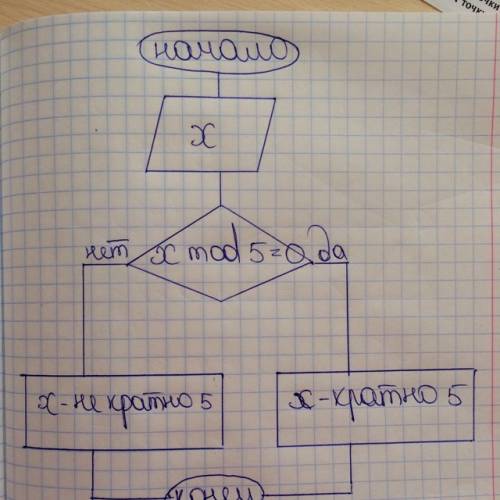 начало
x
нет x mod 5=0 да
x-не кратно 5
x-кратно 5
конец